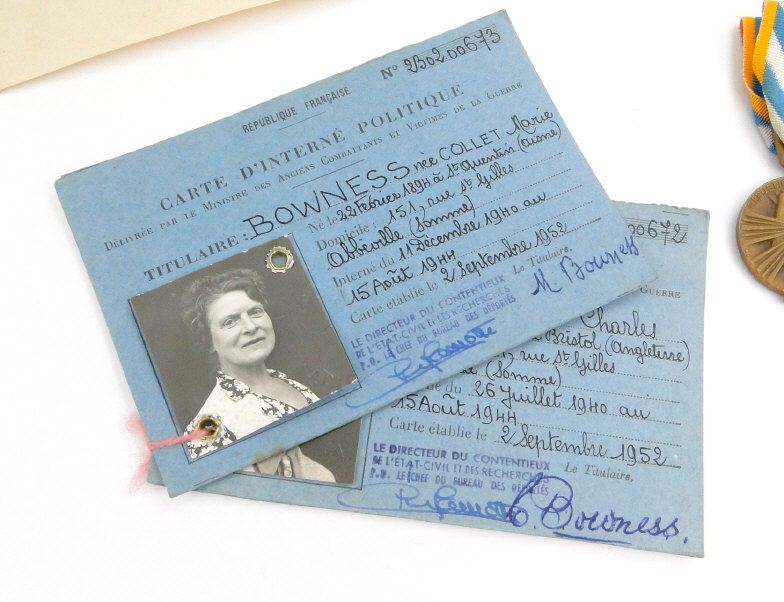 RÉPUBLIQUE FRANÇAISE
N° 2B0200673
CARTE D'INTERNÉ POLITIQUE
DÉLIVRÉE PAR LE MINISTRE DES ANCIENS COMBATTANTS ET VICTIMES DE LA GUERRE
TITULAIRE: BOWNESS née COLLET Marie
Né le 22 Février 1894 à St Quentin (Aisne)
Domicile: 151, rue St Gilles
Abbeville (Somme)
Interné du 11 Décembre 1940 au
15 Août 1944
Carte établie le 2 Septembre 1952
Le Titulaire,
LE DIRECTEUR DU CONTENTIEUX
DE L'ÉTAT-CIVIL ET DES RECHERCHES
P.O. LE CHEF DU BUREAU DES DÉPORTÉS
M Bowness
00672
GUERRE
Charles
Bristol (Angleterre)
rue St Gilles
(Somme)
du 26 Juillet 1940 au
15 Août 1944
Carte établie le 2 Septembre 1952
LE DIRECTEUR DU CONTENTIEUX
DE L'ÉTAT-CIVIL ET DES RECHERCHES
P.O. LE CHEF DU BUREAU DES DÉPORTÉS
Le Titulaire,
C. Bowness.